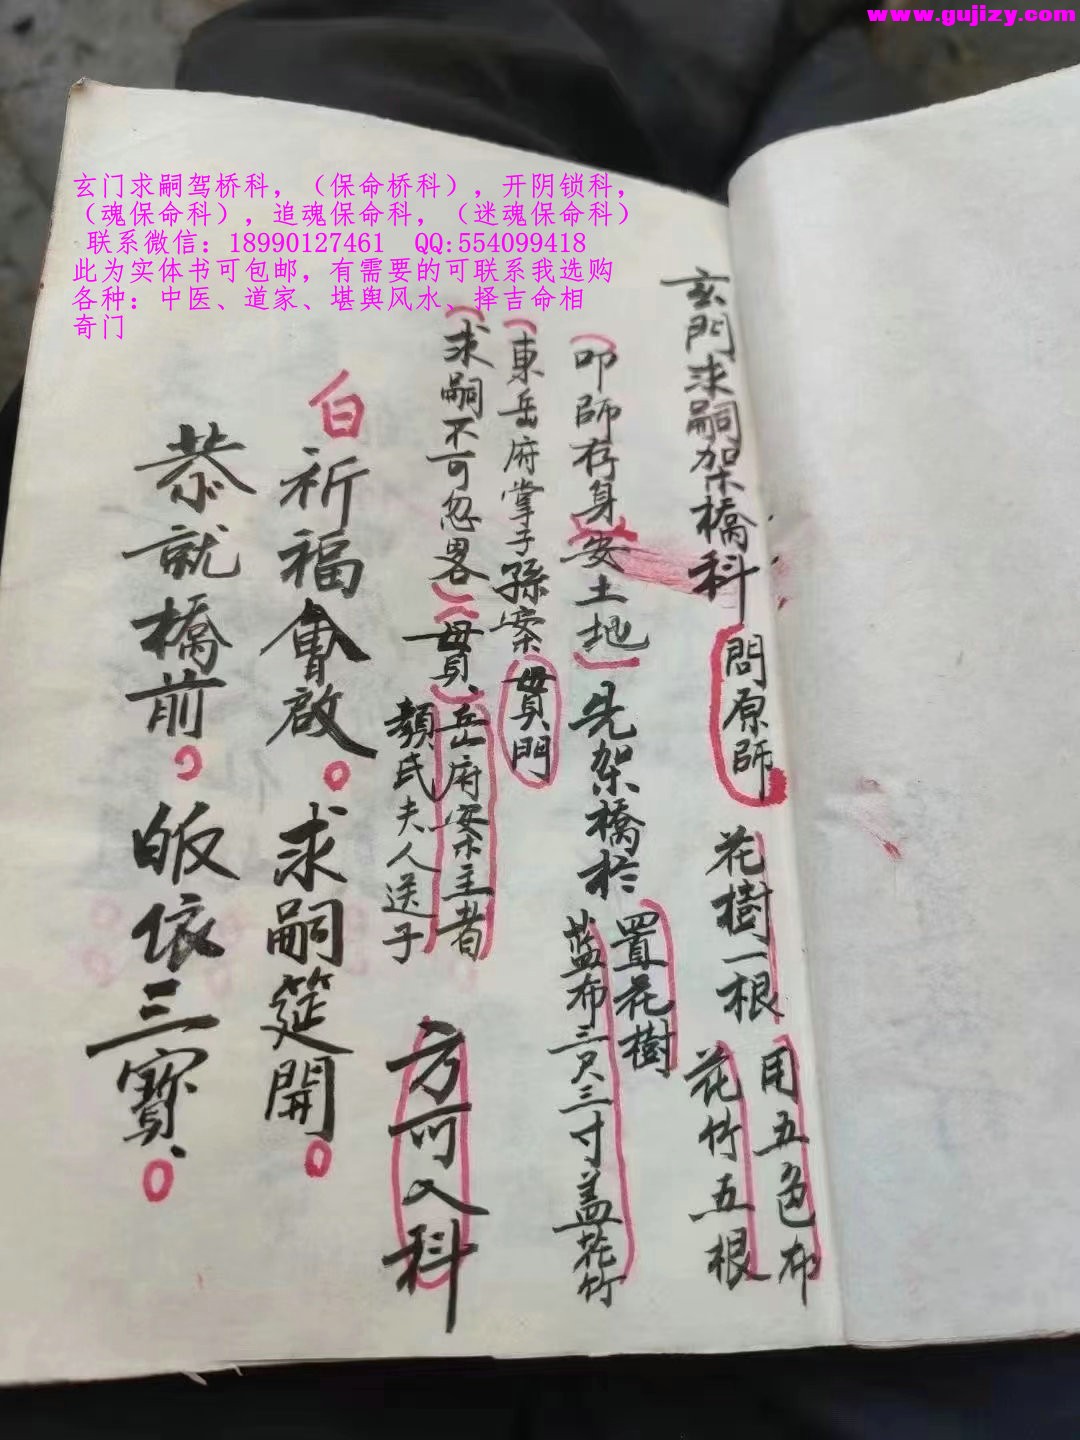 www.gujizy.com
玄门求嗣驾桥科，（保命桥科），开阴锁科，
（魂保命科），追魂保命科，（迷魂保命科）
联系微信：18990127461 QQ:554099418
此为实体书可包邮，有需要的可联系我选购
各种：中医、道家、堪舆风水、择吉命相
奇门
玄門求嗣架橋科 問原師 花樹一根
用五色布
花竹五根
（叩師存身安土地）先架橋於
置花樹
蓝布三尺三寸盖花竹
（東岳府掌子孫案 貫門
（求嗣不可忽畧）（貫、）岳府案主者
顏氏夫人送子
方可入科
白 祈福會啟。求嗣筵開。
恭就橋前。皈依三寶、。